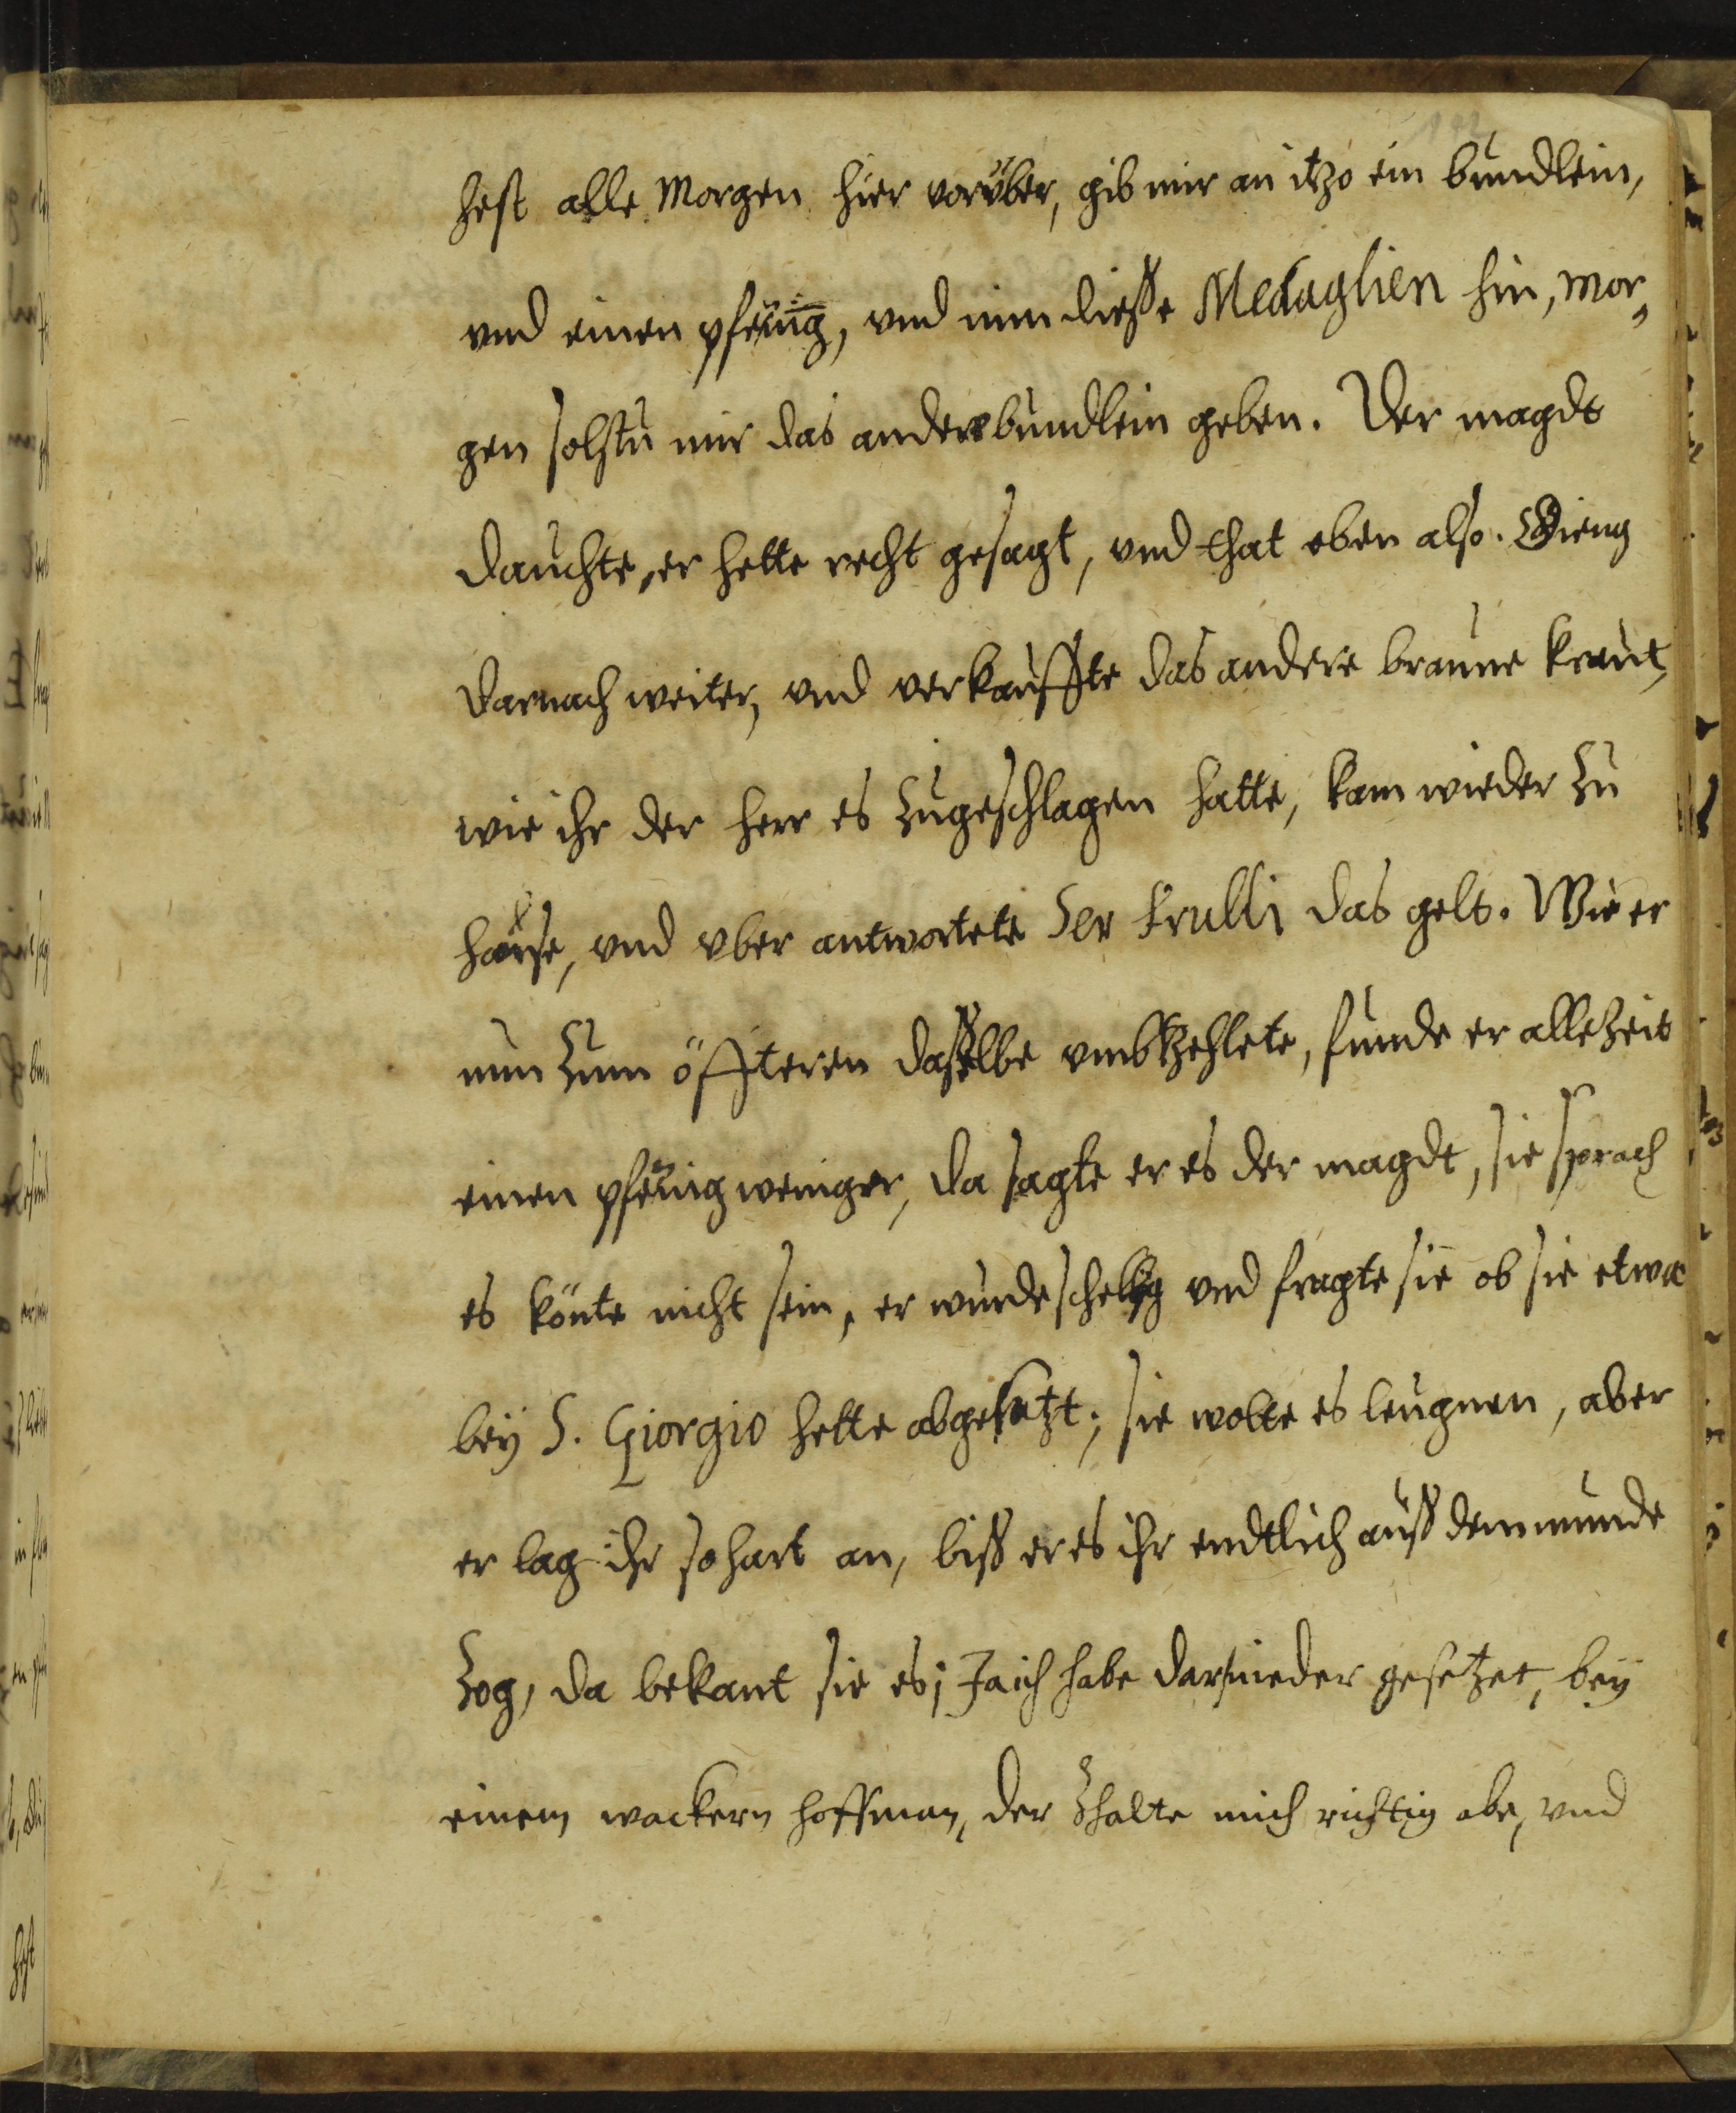 hest alle Morgen hier vorüber, gib mir an itzo ein bundlein,
vnd einen pfenig, vnd nim diesse Medaglien hin, mor¬
gen solstu mir das andere bundlein geben. Der magdt
dauchte, er hette recht gesagt, vnd that eben also. Gieng
darnach weiter, vnd verkauffte das andere braune kraut,
wie ihr der herr es Zugeschlagen hatte, kam wieder Zu
hause, vnd vber antwortete Ser Frulli das gelt. Wie er
nun Zum öffteren dasselbe vmbzehlete, funde er allezeit
einen pfenig weniger, da sagte er es der magdt, sie sprach
es könte nicht sein, er wurde schellig vnd fragte sie ob sie etwa
bey S. Giorgio hette abgesetzt; sie wolte es leugnen, aber
er lag ihr so hart an, biss er es ihr endtlich auss dem munde
Zog, da bekant sie es; Ja ich habe dar nieder gesetzet, bey
einem wackern hoffman, der Zhalte mich richtig abe, vnd